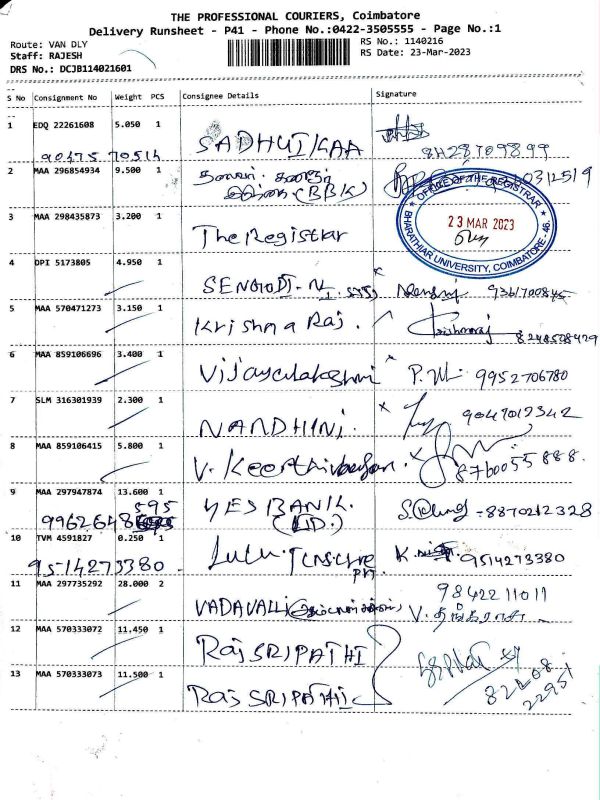 THE PROFESSIONAL COURIERS, Coimbatore
Delivery Runsheet - P41 - Phone No.:0422-3505555 - Page No.:1
Route: VAN DLY
RS No.: 1140216
Staff: RAJESH
RS Date: 23-Mar-2023
DRS No.: DCJB114021601
S No Consignment No Weight PCS Consignee Details Signature
1 EDQ 22261608 5.050 1 SADHUIKAA
90475 70514 8428709899
2 MAA 296854934 9.500 1 (BBK) 0312519
OFFICE OF THE REGISTRAR
23 MAR 2023
BHARATHIAR UNIVERSITY, COIMBATORE - 46.
3 MAA 298435873 3.200 1 The Registrar
4 DPI 5173805 4.950 1 SENGODI-N 9361700845
5 MAA 570471273 3.150 1 Krishna Raj. 8248508429
6 MAA 859106696 3.400 1 Vijayalakshmi P. 9952706780
7 SLM 316301939 2.300 1 NANDHINI. 9047012342
8 MAA 859106415 5.800 1 V. Keerthivasan. 8760055888.
9 MAA 297947874 13.600 1 YES BANK. (LTD.) 8870212328
9962648 595
10 TVM 4591827 0.250 1 Lulu K. 9514273380
9514273380
11 MAA 297735292 28.000 2 VADAVALLI 9842211011
V. தங்கராசு
12 MAA 570333072 11.450 1 RAJSRIPATHI
13 MAA 570333073 11.500 1 RAJSRIPATHI 82208 22951